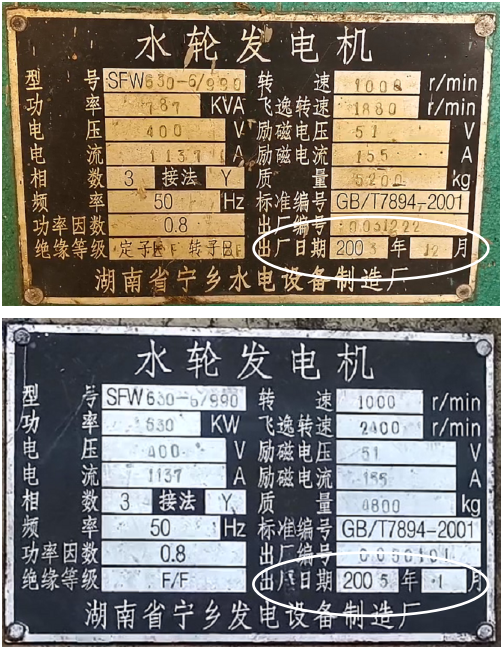 水轮发电机
型号 SFW630-6/990 转速 1000 r/min
功率 787 KVA 飞逸转速 1880 r/min
电压 400 V 励磁电压 51 V
电流 1137 A 励磁电流 155 A
相数 3 接法 Y 质量 5200 kg
频率 50 Hz 标准编号 GB/T7894-2001
功率因数 0.8 出厂编号 0051222
绝缘等级 定子 F 转子 F 出厂日期 2005 年 12 月
湖南省宁乡水电设备制造厂
水轮发电机
型号 SFW630-6/990 转速 1000 r/min
功率 630 KW 飞逸转速 2400 r/min
电压 400 V 励磁电压 51 V
电流 1137 A 励磁电流 155 A
相数 3 接法 Y 质量 4800 kg
频率 50 Hz 标准编号 GB/T7894-2001
功率因数 0.8 出厂编号 0050101
绝缘等级 F/F 出厂日期 2005 年 1 月
湖南省宁乡发电设备制造厂